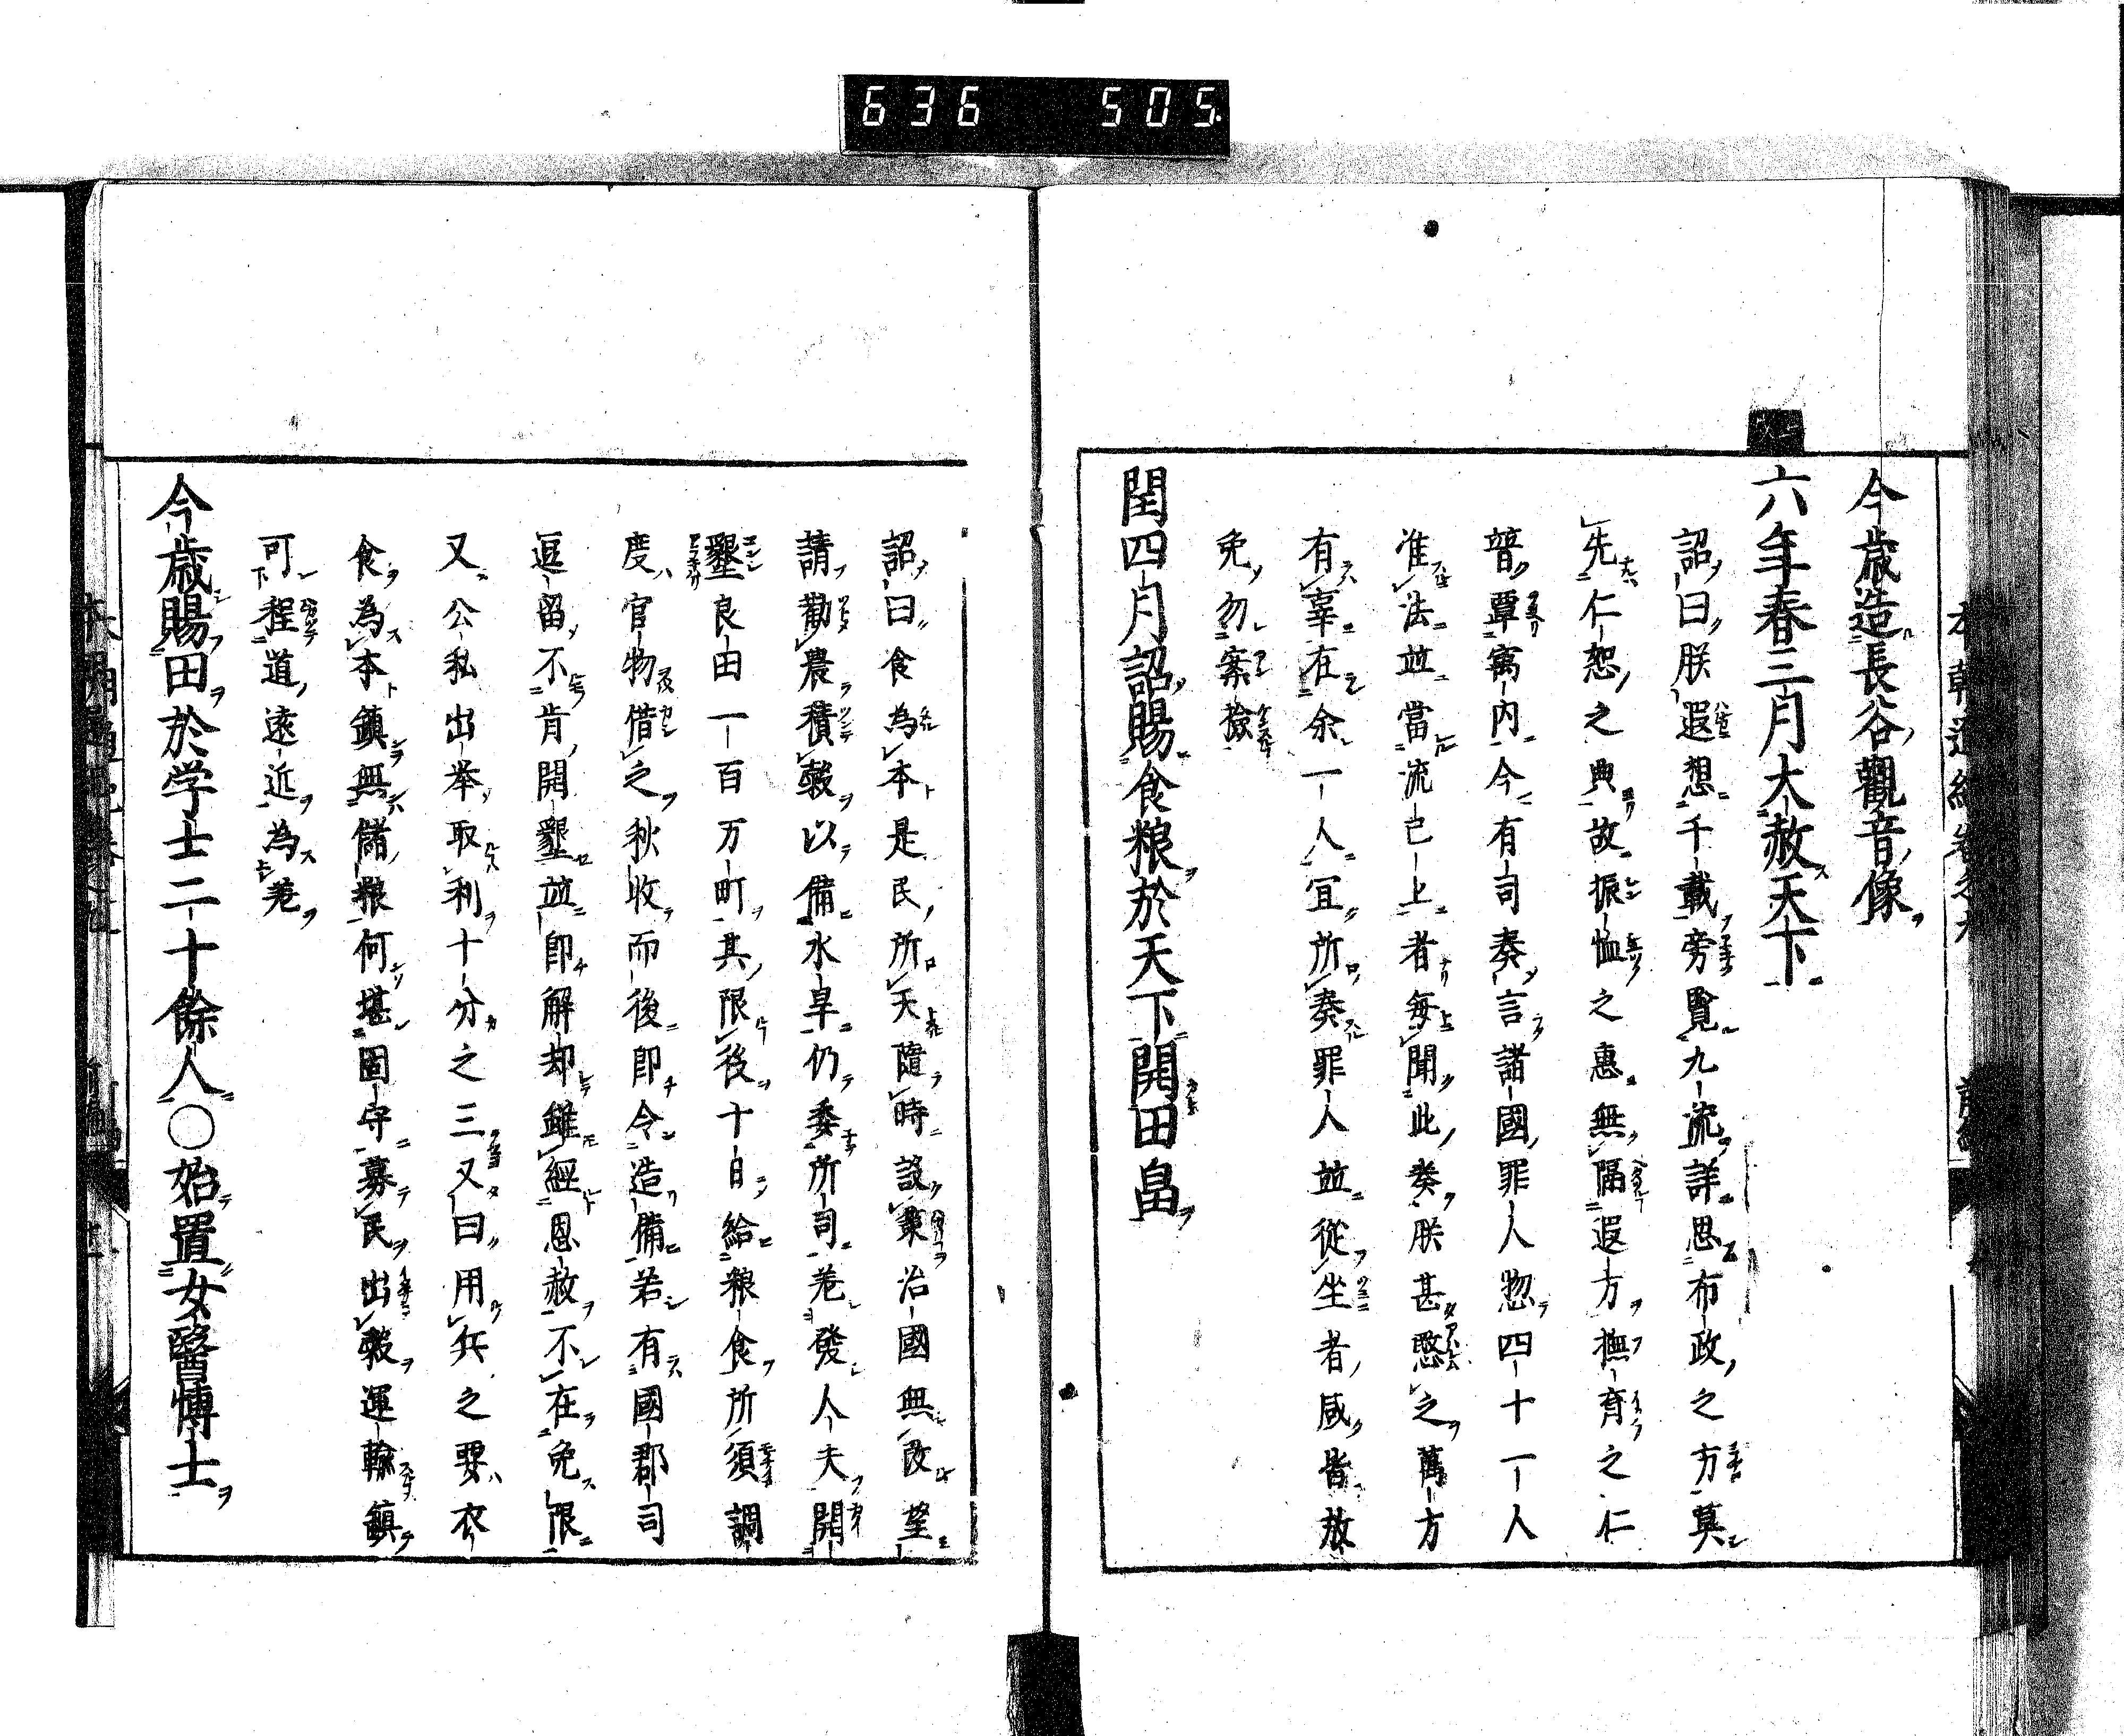 636 505
今歳造長谷觀音像
六年春三月大赦天下
詔曰朕遐想千載旁覧九流詳思布政之方莫
先仁恕之典故振恤之惠無隔遐方撫育之仁
普覃寓内今有司奏言諸國罪人惣四十一人
准法並當流已上者毎聞此奏朕甚愍之萬方
有辜在余一人宜所奏罪人並從坐者咸皆放
免勿案撿
閏四月詔賜食粮於天下開田畠
詔曰食為本是民所天隨時設策治國無改望
請勸農積穀以備水旱仍委所司差發人夫開
墾良田一百万町其限後十日給粮食所須調
度官物借之秋收而後即令造備若有國郡司
逗留不肯開墾並即解却雖經恩赦不在免限
又公私出挙取利十分之三又曰用兵之要衣
食為本鎮無儲粮何堪固守募民出穀運輸鎮
可程道遠近為差
今歳賜田於学士二十餘人〇始置女醫博士